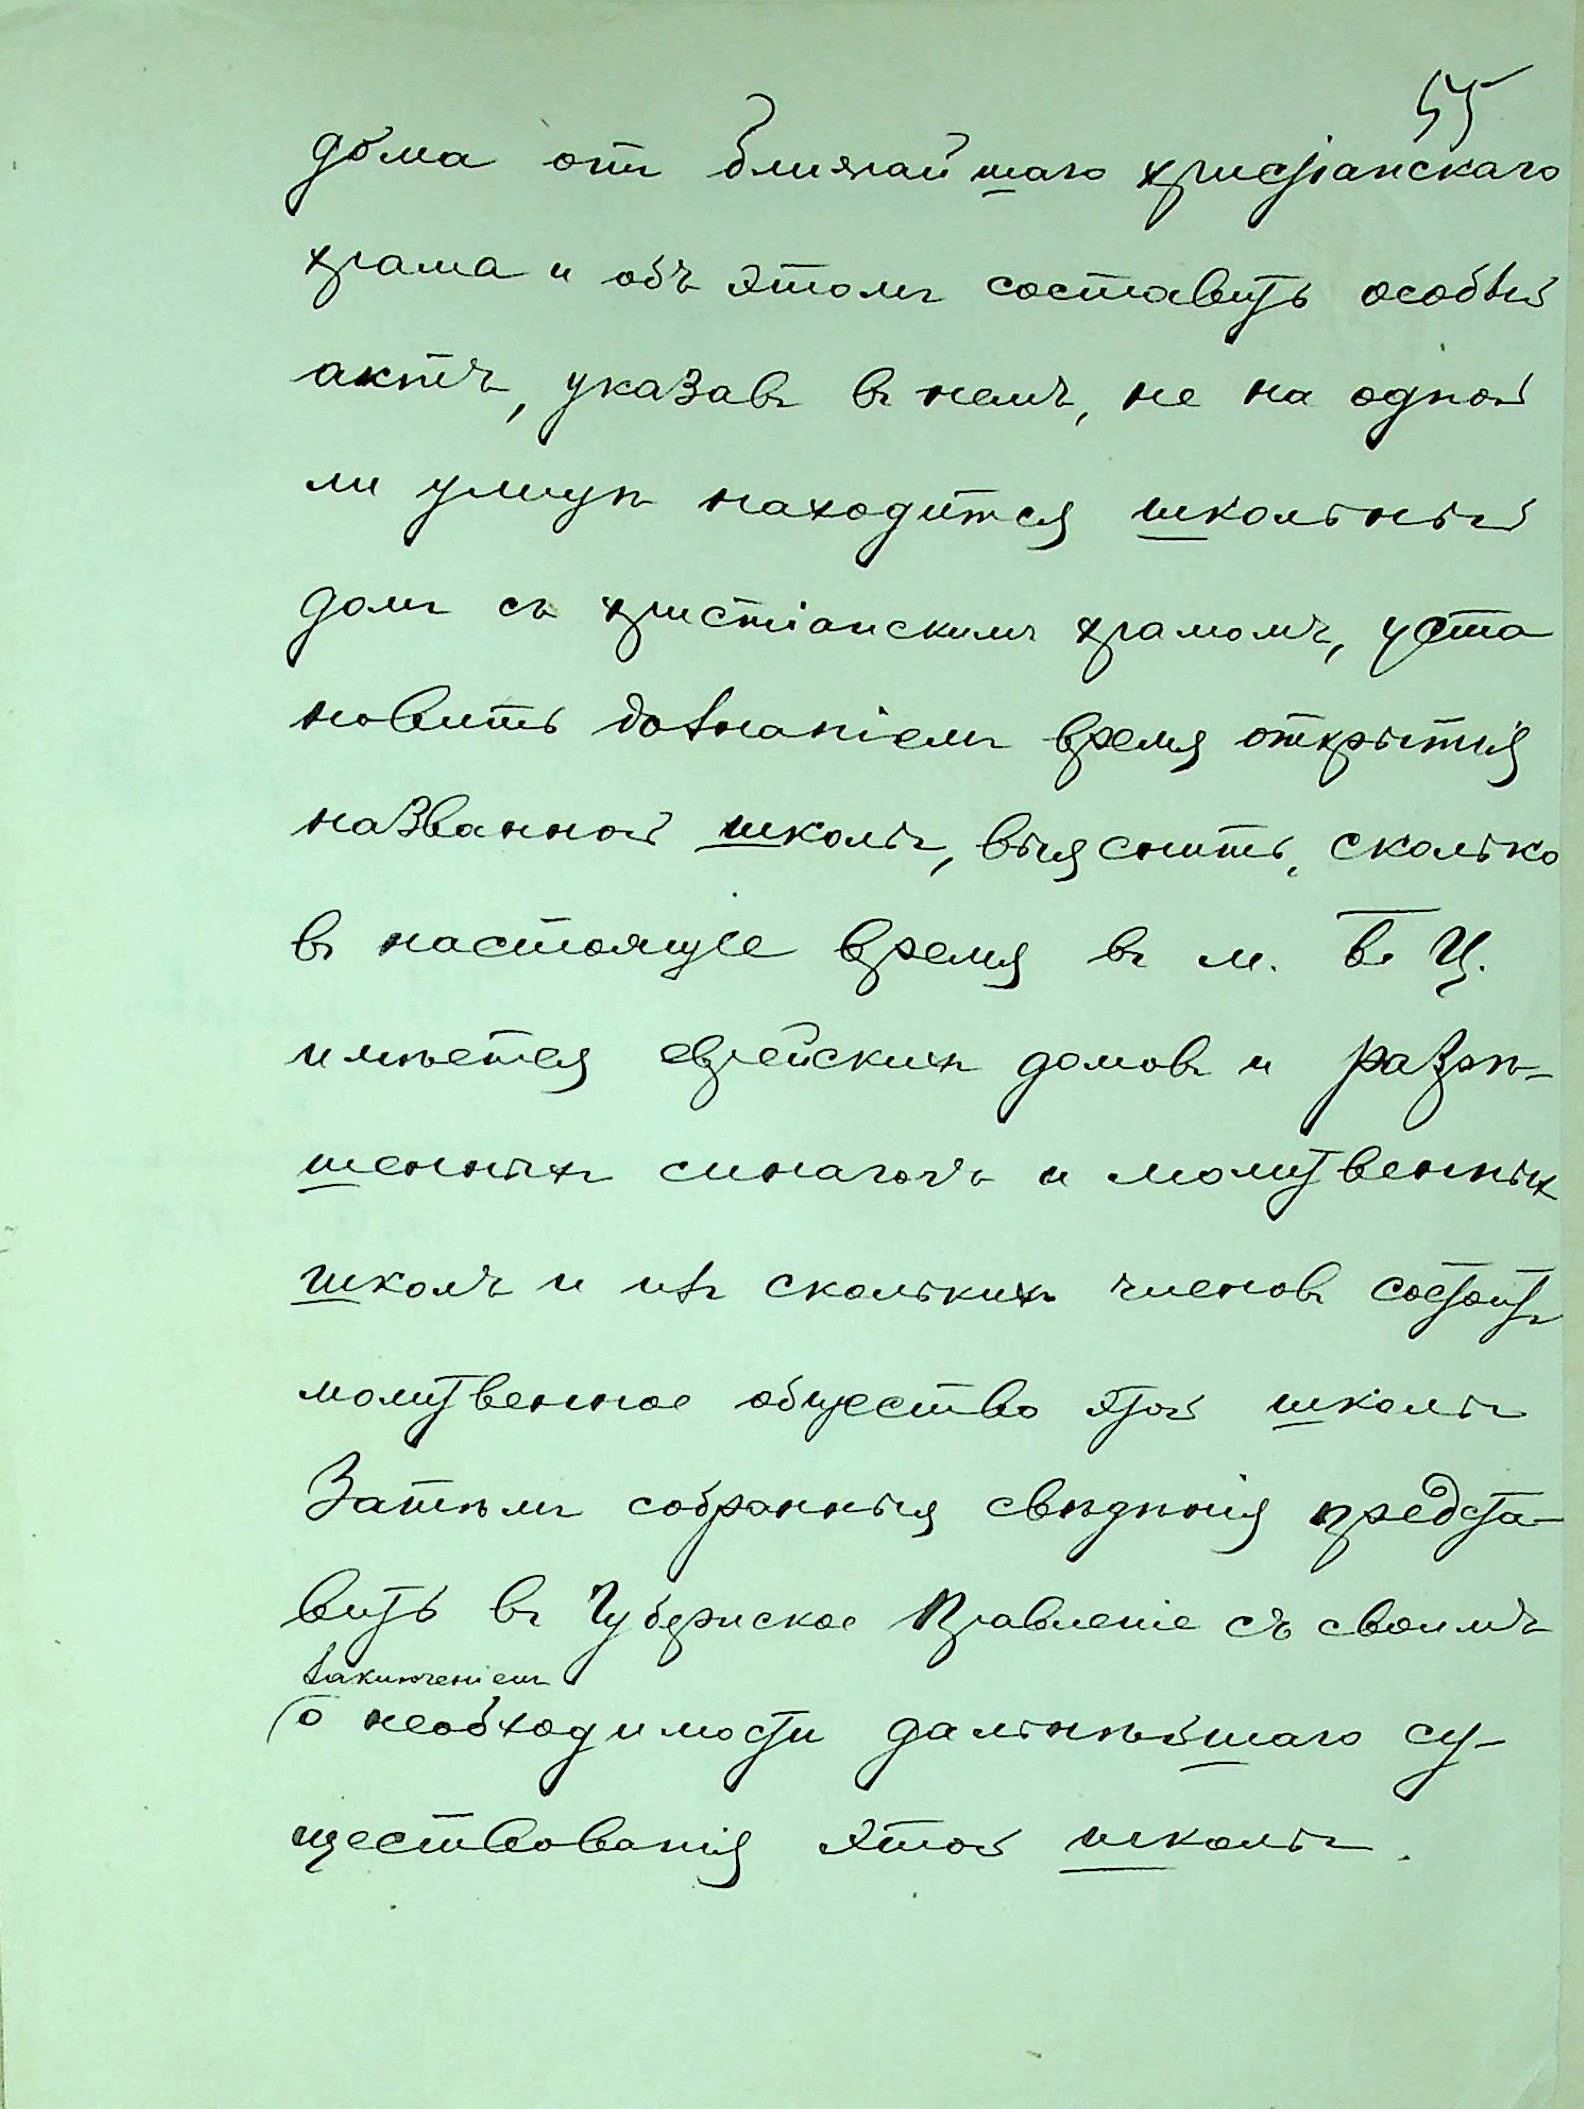 55
дома отъ ближайшаго христіанскаго
храма и объ этомъ составить особый
актъ, указавъ въ немъ, не на одной
ли улицѣ находится школьный
домъ съ христіанскимъ храмомъ, уста
новить дознаніемъ время открытія
названной школы, выяснить, сколько
въ настоящее время въ м. Б. Ц.
имѣется еврейскихъ домовъ и разрѣ-
шенныхъ синагогъ и молитвенныхъ
школъ и изъ сколькихъ членовъ состоитъ
молитвенное общество этой школы
Затѣмъ собранныя свѣдѣнія предста-
вить въ Губернское Правленіе съ своимъ
заключеніемъ
о необходимости дальнѣйшаго су-
ществованія этой школы.